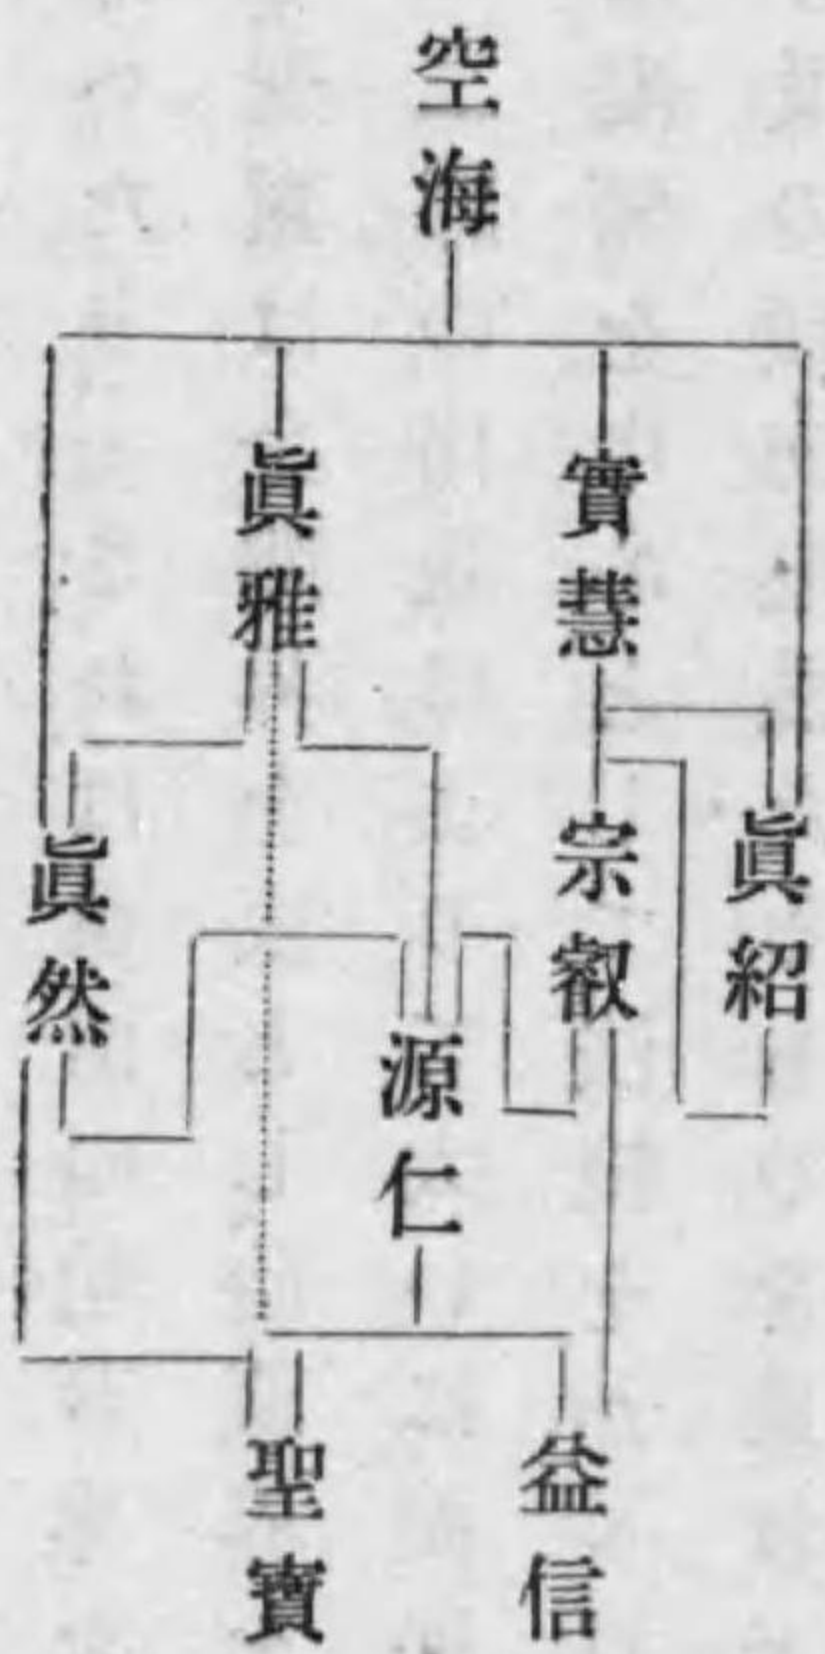 空海
實慧
眞雅
眞紹
宗叡
眞然
源仁
益信
聖寶